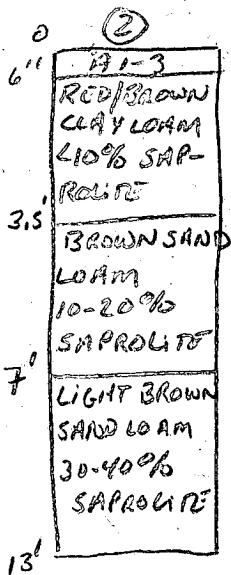 0 2
6" A1-3
RED/BROWN
CLAY LOAM
<10% SAP-
ROLITE
3.5'
BROWN SAND
LOAM
10-20%
SAPROLITE
7'
LIGHT BROWN
SAND LOAM
30-40%
SAPROLITE
13'